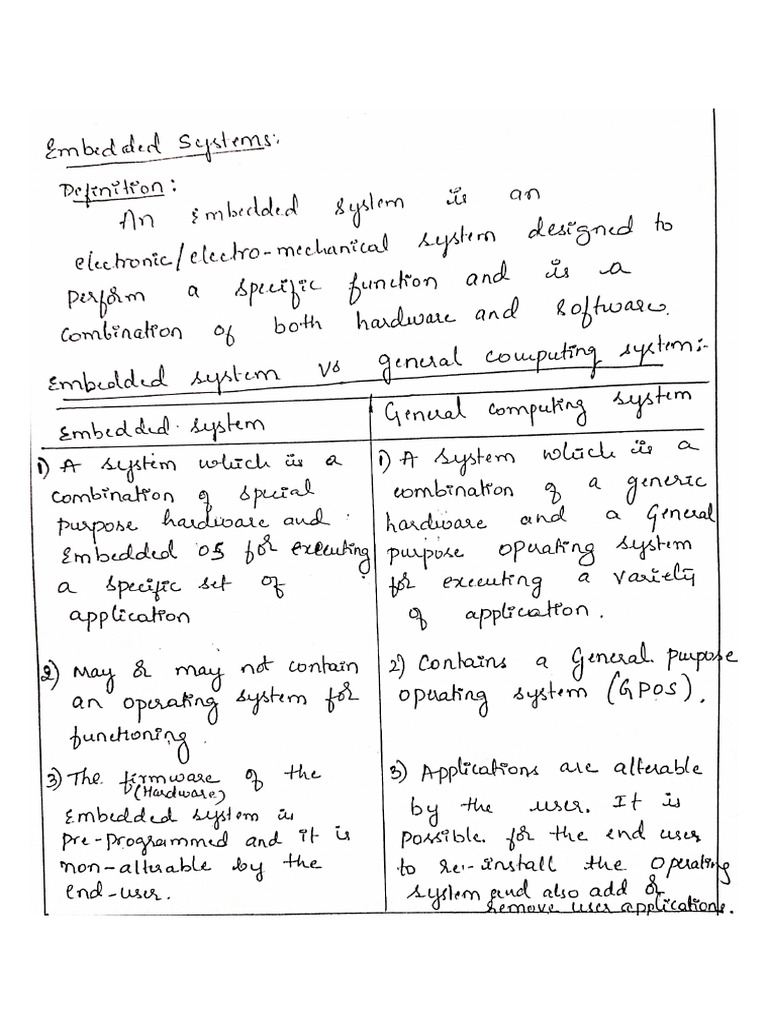 Embedded Systems:
Definition:
An Embedded system is an
electronic/electro-mechanical system designed to
perform a specific function and is a
combination of both hardware and software.
Embedded system Vs general computing system:-
Embedded system
1) A system which is a
combination of special
purpose hardware and
Embedded OS for executing
a specific set of
application
2) May or may not contain
an operating system for
functioning.
3) The firmware of the
(Hardware)
Embedded system is
pre-programmed and it is
non-alterable by the
end-user.
General computing system
1) A system which is a
combination of a generic
hardware and a General
purpose operating system
for executing a variety
of application.
2) Contains a General purpose
operating system (GPOS).
3) Applications are alterable
by the user. It is
possible for the end user
to re-install the operating
system and also add or
remove user applications.